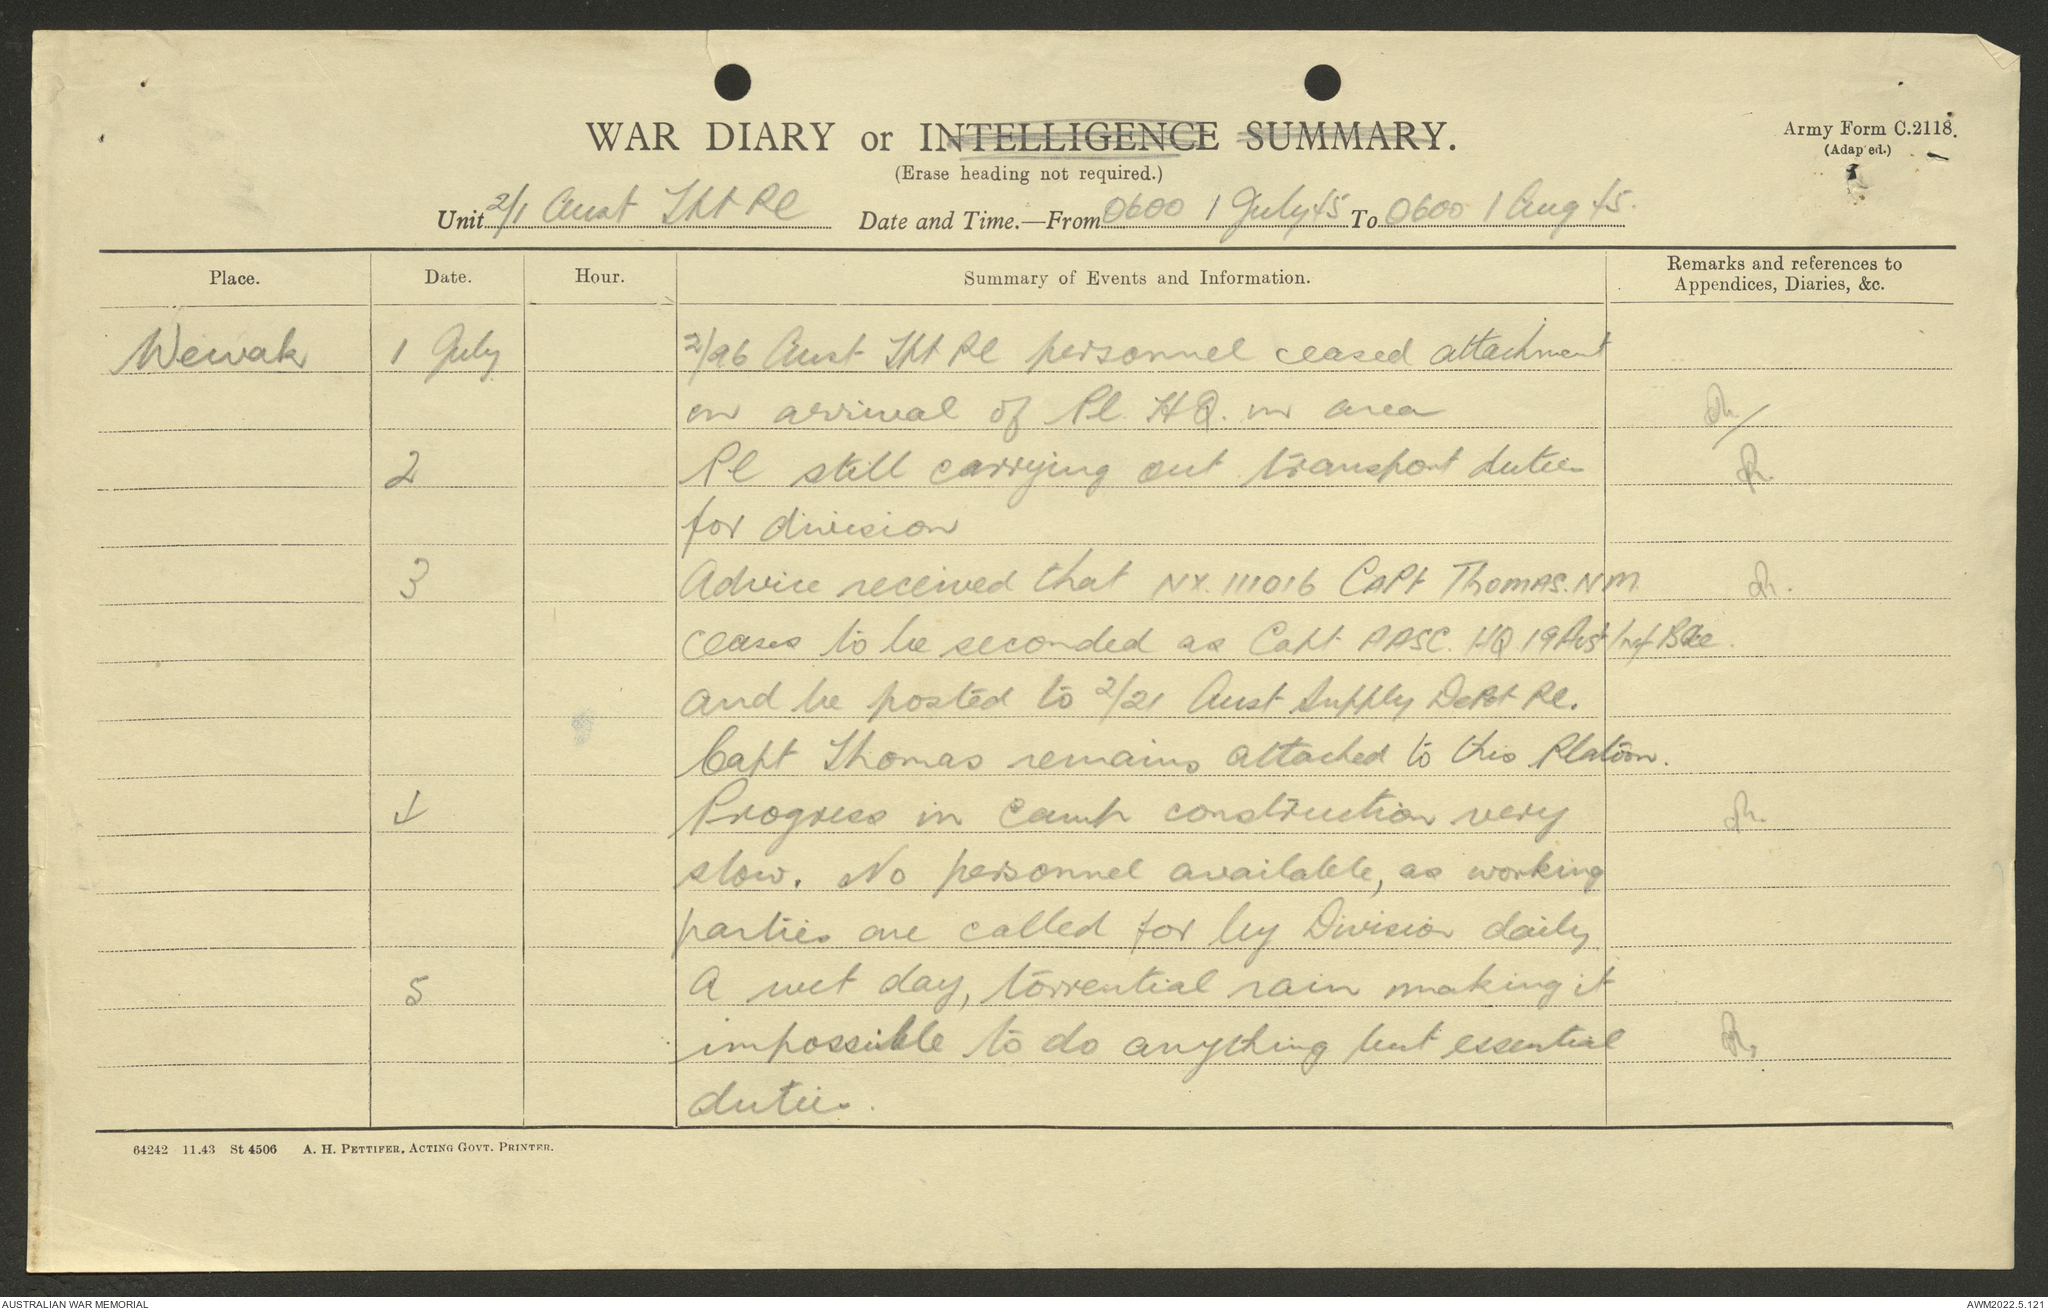 WAR DIARY or INTELLIGENCE SUMMARY.
Army Form C.2118.
(Adap'ed.)
(Erase heading not required.)
Unit 2/1 Aust Tpt Pl Date and Time.—From 0600 1 July 45 To 0600 1 Aug 45.
Place. Date. Hour. Summary of Events and Information. Remarks and references to
Appendices, Diaries, &c.
Wewak 1 July 2/96 Aust Tpt Pl personnel ceased attachment
on arrival of Pl. HQ. in area
2 Pl still carrying out transport duties
for division
3 Advice received that NX.111016 Capt Thomas. N M.
ceases to be seconded as Capt AASC. HQ 19 Aust Inf Bde.
and be posted to 2/21 Aust Supply Depot Pl.
Capt Thomas remains attached to this Platoon.
4 Progress in camp construction very
slow. No personnel available, as working
parties are called for by Division daily
5 A wet day, torrential rain making it
impossible to do anything but essential
duties.
64242 11.43 St 4506 A. H. PETTIFER, ACTING GOVT. PRINTER.
AUSTRALIAN WAR MEMORIAL
AWM2022.5.121